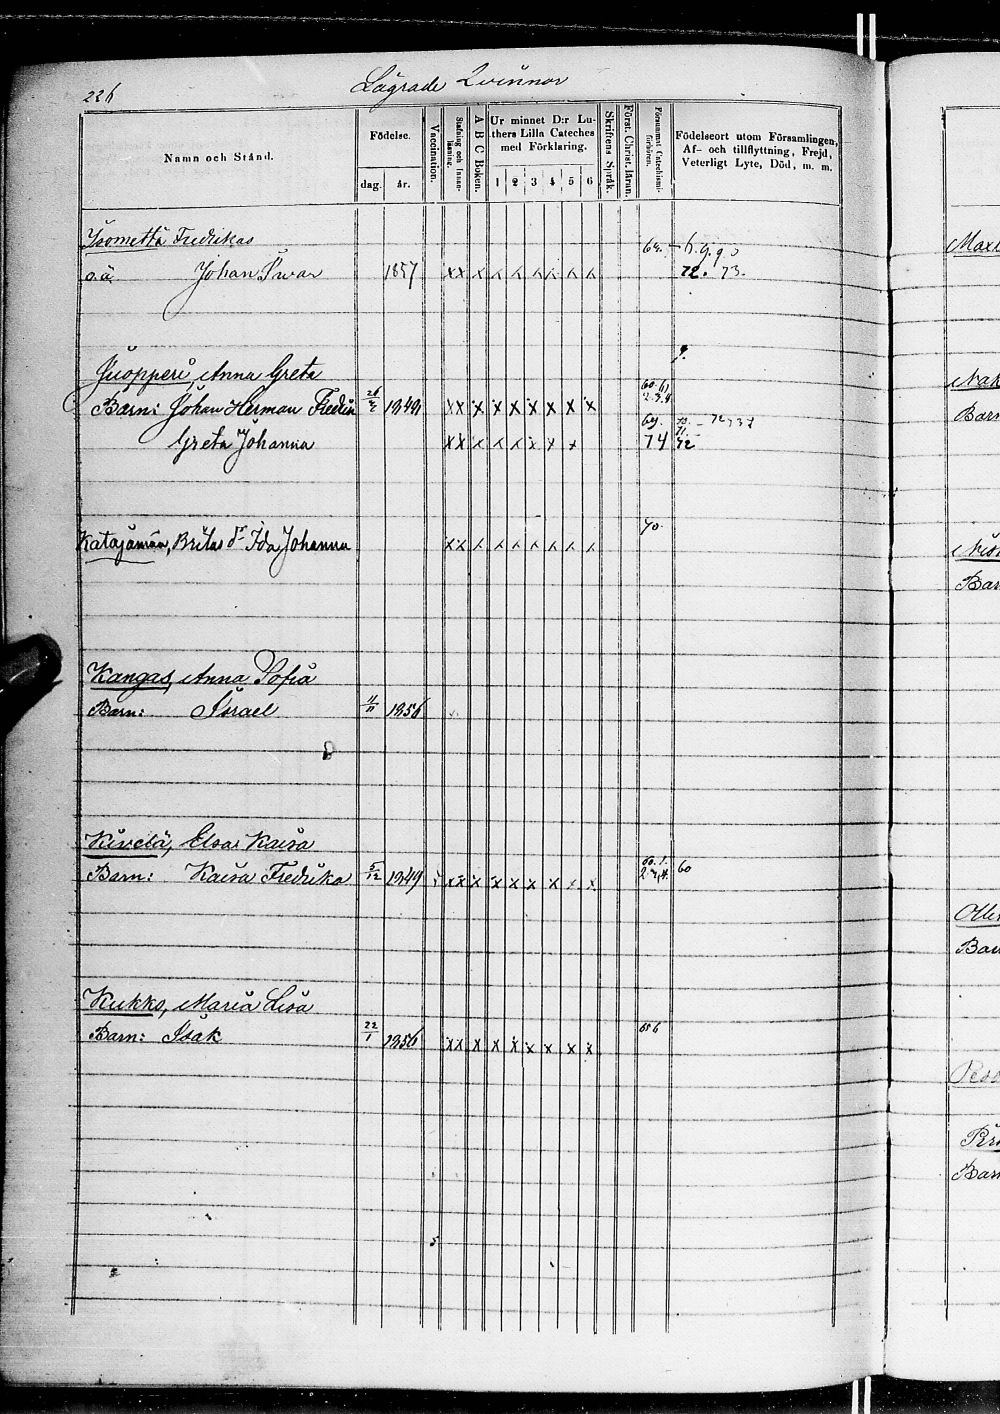 226
Lägrade Qvinnor
Namn och Stånd.
Födelse.
dag.
år.
Vaccination.
Stafning och Innanläsning.
A B C Boken.
Ur minnet D:r Luthers Lilla Cateches med Förklaring.
1 2 3 4 5 6
Skriftens Språk.
Först. Christ. läran.
Försummat Catechismiförhören.
Födelseort utom Församlingen,
Af- och tillflyttning, Frejd,
Veterligt Lyte, Död, m. m.
Isometsä Fredrikas
o.ä. Johan Iwar 1857 x x x x x x x x x 72. 73.
Juopperi, Anna Greta
Barn: Johan Herman Fredrik 1849 x x x x x x x x x
69.
Greta Johanna x x x x x x x x 74 72
70.
Katajamaa, Britas dr Ida Johanna x x x x x x x x x
Kangas, Anna Sofia
Barn: Israel 11/11 1856
Kivelä, Elsa Kaisa
Barn: Kaisa Fredrika 5/12 1849 x x x x x x x x x 60
Kukko, Maria Lisa
Barn: Isak 22/1 1856 x x x x x x x x x
5